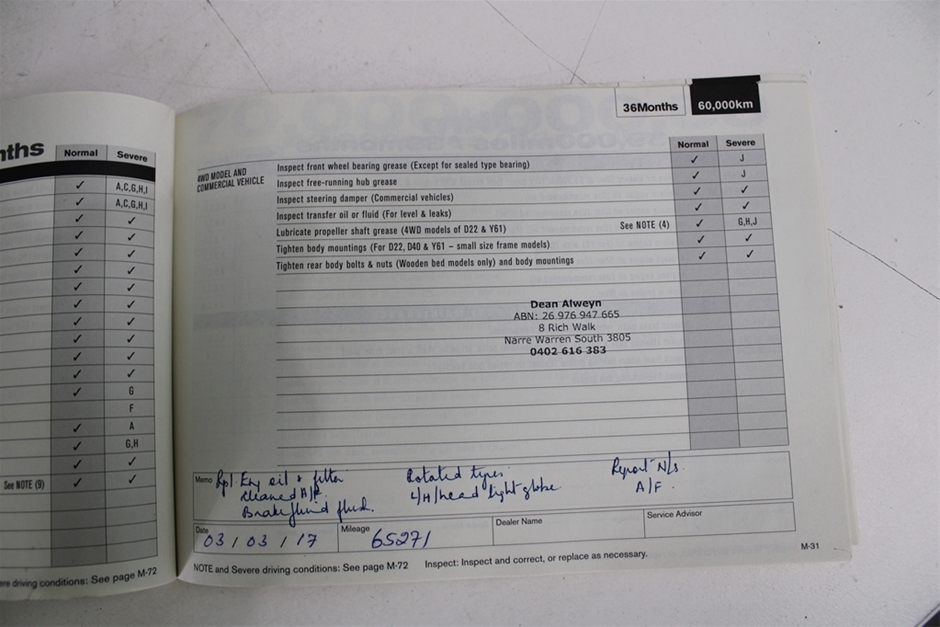 nths
Normal Severe
✓ A,C,G,H,I
✓ A,C,G,H,I
✓ ✓
✓ ✓
✓ ✓
✓ ✓
✓ ✓
✓ ✓
✓ ✓
✓ ✓
✓ ✓
✓ ✓
✓ G
F
✓ A
✓ G,H
✓ ✓
See NOTE (9) ✓ ✓
ere driving conditions: See page M-72
36Months 60,000km
Normal Severe
4WD MODEL AND
COMMERCIAL VEHICLE
Inspect front wheel bearing grease (Except for sealed type bearing) ✓ J
Inspect free-running hub grease ✓ J
Inspect steering damper (Commercial vehicles) ✓ ✓
Inspect transfer oil or fluid (For level & leaks) ✓ ✓
Lubricate propeller shaft grease (4WD models of D22 & Y61) See NOTE (4) ✓ G,H,J
Tighten body mountings (For D22, D40 & Y61 – small size frame models) ✓ ✓
Tighten rear body bolts & nuts (Wooden bed models only) and body mountings ✓ ✓
Dean Alweyn
ABN: 26 976 947 665
8 Rich Walk
Narre Warren South 3805
0402 616 383
Memo Rpl Eng oil & filter Rotated tyres Report N/s.
cleaned A/F. L/H/head light globe A/F.
Brake fluid flush.
Date Mileage Dealer Name Service Advisor
03 / 03 / 17 65271
NOTE and Severe driving conditions: See page M-72 Inspect: Inspect and correct, or replace as necessary.
M-31